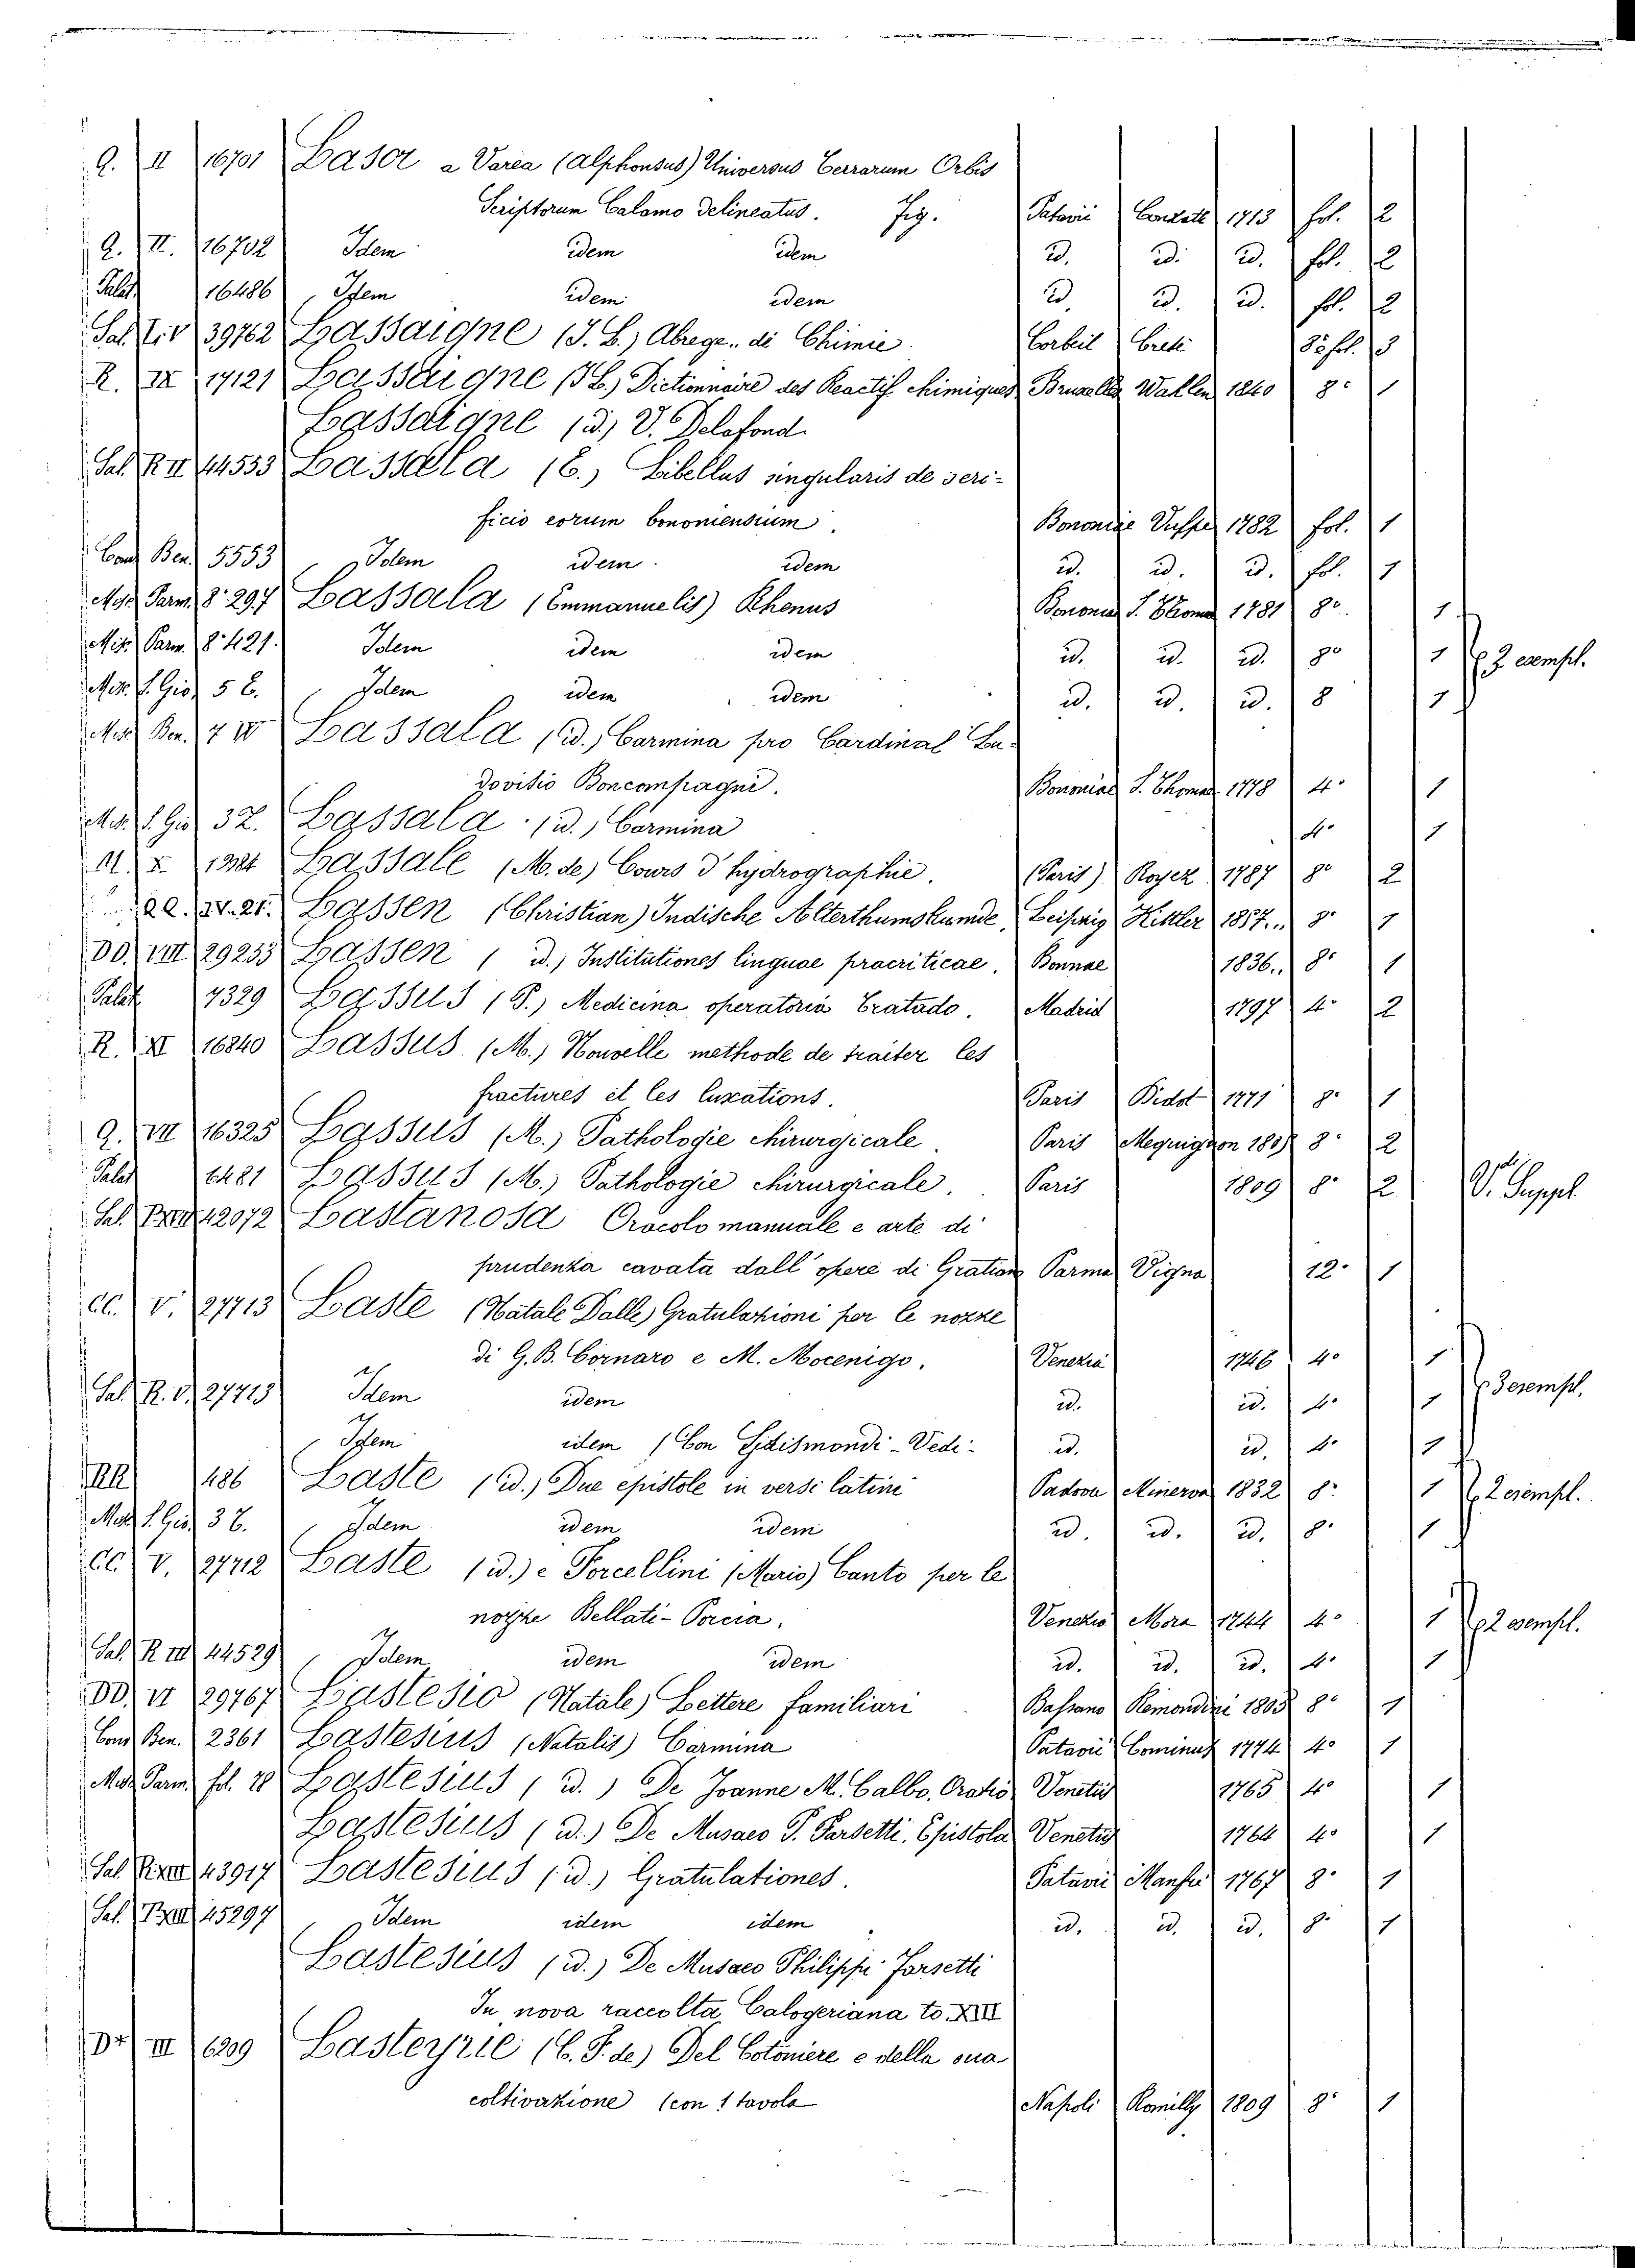 Q. II 16701 Lasor a Varea (Alphonsus) Universus Terrarum Orbis
Scriptorum Calamo delineatus. Fig. Patavii Conzatti 1713 fol. 2
Q. II. 16702 Idem idem idem id. id. id. fol. 2
Palat. 16486 Idem idem idem id. id. id. fol. 2
Sal. T.V 39762 Lassaigne (J. L.) Abrege.. di Chimie. Corbeil Creté fol. 3
R. IX 17121 Lassaigne (J L.) Dictionnaire des Reactif chimiques Bruxelles Wahlen 1840 8° 1
Lassaigne (id.) V. Delafond.
Sal. R II 44553 Lassala (E.) Libellus singularis de seri-
ficio eorum bononiensium. Bononiae 1782 fol. 1
Cons Ben. 5553 Idem idem idem id. id. id. fol. 1
Misc Parm. 8° 297 Lassala (Emmanuelis) Rhenus Bononiae S. Thomae 1781 8° 1
Mis. Parm. 8° 421. Idem idem idem id. id. id. 8° 1 3 esempl.
Mis. S. Gio. 5 Idem idem idem id. id. id. 8 1
Mis. Ben. 7 IV Lassala (id.) Carmina pro Cardinal Lu-
dovisio Boncompagni. Bononiae S. Thomae 1778 4° 1
Mis. S. Gio. 37. Lassala (id.) Carmina 4° 1
M. X. Lassale (M. de) Cours d'hydrographie. (Paris) Royez 1787 8° 2
21. Lassen (Christian) Indische Alterthumskunde, Leipzig Kittler 1857.. 8° 1
DD. VIII 29233 Lassen (id.) Institutiones linguae pracriticae. Bonnae 1836.. 8° 1
Palat. 7329 Lassus (P.) Medicina operatoria Tratado. Madrid 1797 4° 2
R. XI 16840 Lassus. (M.) Nouvelle methode de traiter les
fractures et les luxations. Paris Didot 1771 8° 1
Q. VII 16325 Lassus (M.) Pathologie chirurgicale. Paris Mequignon 8° 2
Palat 6481 Lassus (M.) Pathologie chirurgicale. Paris 1809 8° 2 V. Suppl
Sal. 42072 Lastanosa Oracolo manuale e arte di
prudenza cavata dall'opere di Gratiano Parma Vigna 12° 1
CC. V. 27713 Laste (Natale Dalle) Gratulazioni per le nozze
di G. B. Cornaro e M. Mocenigo. Venezia 1746 4° 1
Sal. R. V. 27713 Idem idem id. id. 4° 1 3 esempl.
Idem idem (Con Sigismondi - Vedi - id. id. 4° 1
RR 486 Laste (id.) Due epistole in versi latini Padova Minerva 1832 8° 1 2 esempl.
Mis. S. Gio. 37. Idem idem idem id. id. id. 8° 1
CC V. 27712 Laste (id.) e Forcellini (Mario) Canto per le
nozze Bellati-Porcia. Venezia Mora 1744 4° 1 2 esempl.
Sal. R III 44529 Idem idem idem id. id. id. 4° 1
DD. VI 29767 Lastesio (Natale) Lettere familiari Bassano Remondini 1805 8° 1
Cons Ben. 2361 Lastesius (Natalis) Carmina Patavii Cominus 1774 4° 1
Mis Parm. fol. 18 Lastesius (id.) De Joanne M. Calbo. Oratio Venetiis 1765 4° 1
Lastesius (id.) De Musaeo P. Farsetti. Epistola Venetiis 1764 4° 1
Sal. 43917 Lastesius (id.) Gratulationes. Patavii Manfrè 1767 8° 1
Sal. 45297 Idem idem idem id. id. id. 8° 1
Lastesius (id.) De Musaeo Philippi Farsetti
In nova raccolta Calogeriana to. XII
III 6209 Lasteyrie (C. P. de) Del Cotoniere e della sua
coltivazione (con 1 tavola Napoli Romilly 1809 8° 1